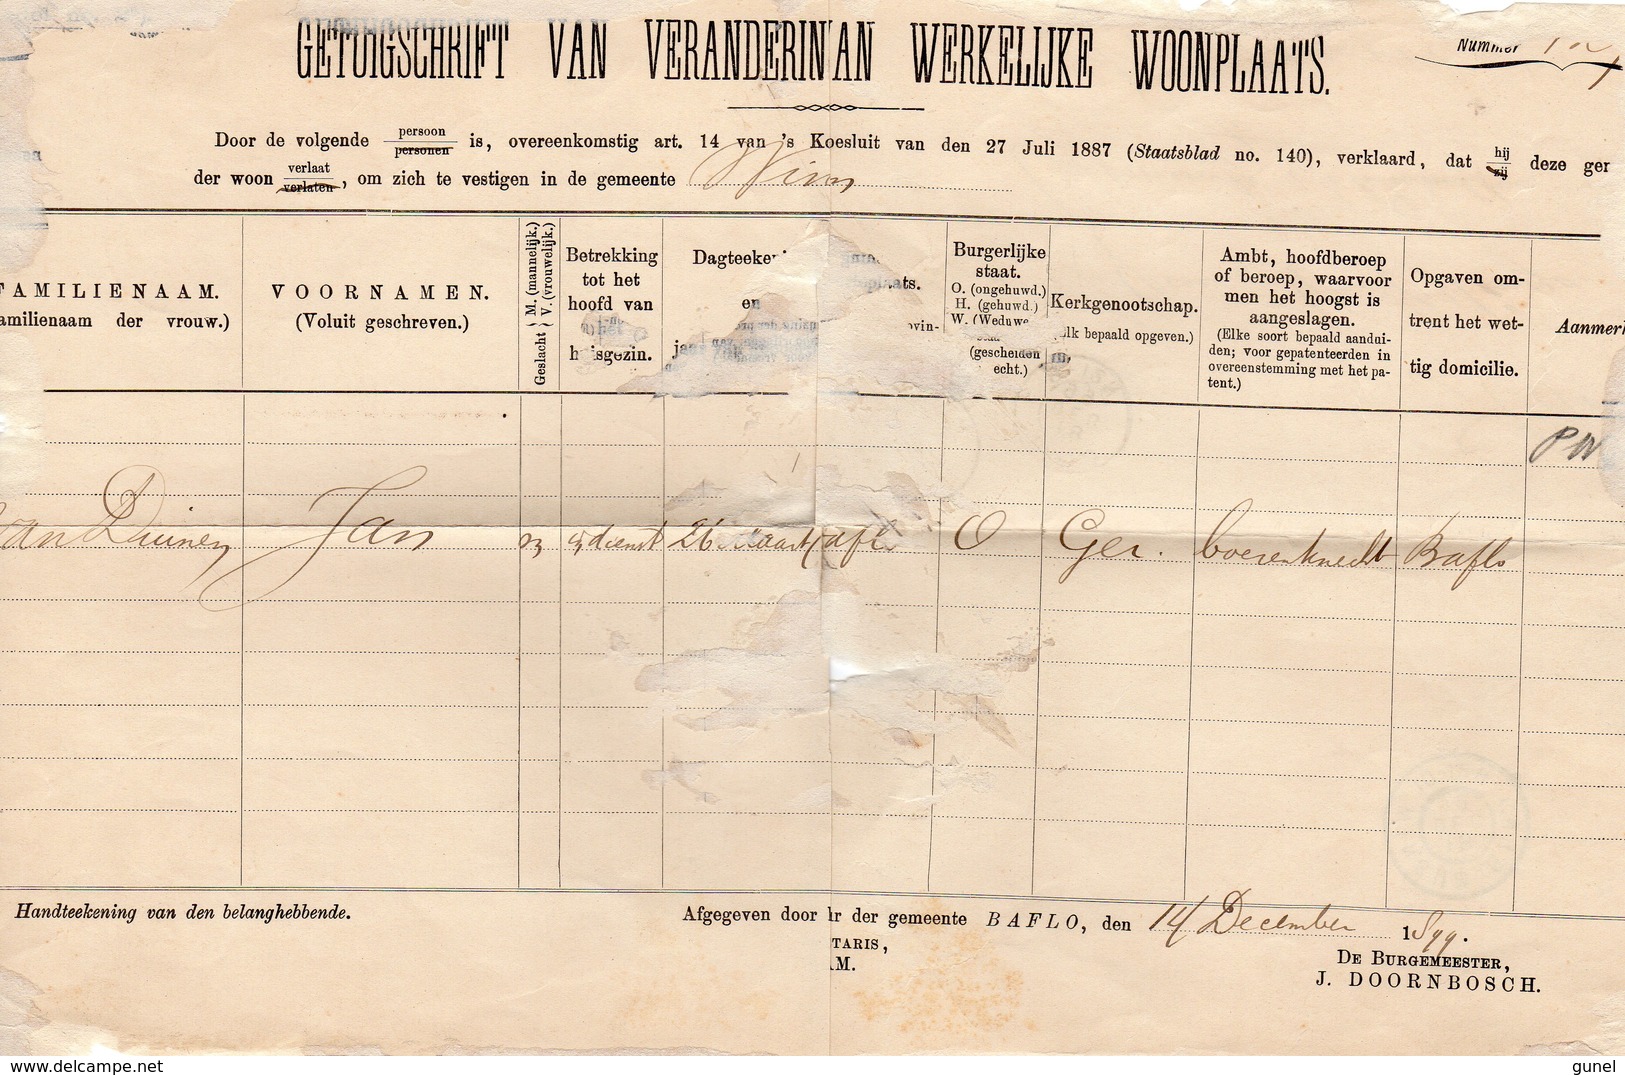 GETUIGSCHRIFT VAN VERANDERIN AN WERKELIJKE WOONPLAATS.
Nummer
Door de volgende persoon personen is, overeenkomstig art. 14 van 's Koesluit van den 27 Juli 1887 (Staatsblad no. 140), verklaard, dat hij zij deze ger
der woon verlaat verlaten, om zich te vestigen in de gemeente
AMILIENAAM.
amilienaam der vrouw.)
VOORNAMEN.
(Voluit geschreven.)
Geslacht M. (mannelijk.) V. (vrouwelijk.)
Betrekking
tot het
hoofd van
huisgezin.
Dagteeken
en
ja
ats.
ovin-
Burgerlijke
staat.
O. (ongehuwd.)
H. (gehuwd.)
W. (Weduwe
(gescheiden
echt.)
Kerkgenootschap.
elk bepaald opgeven.)
Ambt, hoofdberoep
of beroep, waarvoor
men het hoogst is
aangeslagen.
(Elke soort bepaald aandui-
den; voor gepatenteerden in
overeenstemming met het pa-
tent.)
Opgaven om-
trent het wet-
tig domicilie.
Aanmer
PW
van Duinen Jan m dienst 26 Maart afl O Ger. boerenknecht Baflo
Handteekening van den belanghebbende.
Afgegeven door r der gemeente BAFLO, den 14 December 1899.
TARIS,
AM.
DE BURGEMEESTER,
J. DOORNBOSCH.
gunel